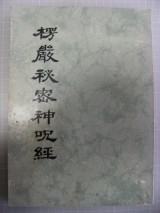 楞嚴秘密神呪經